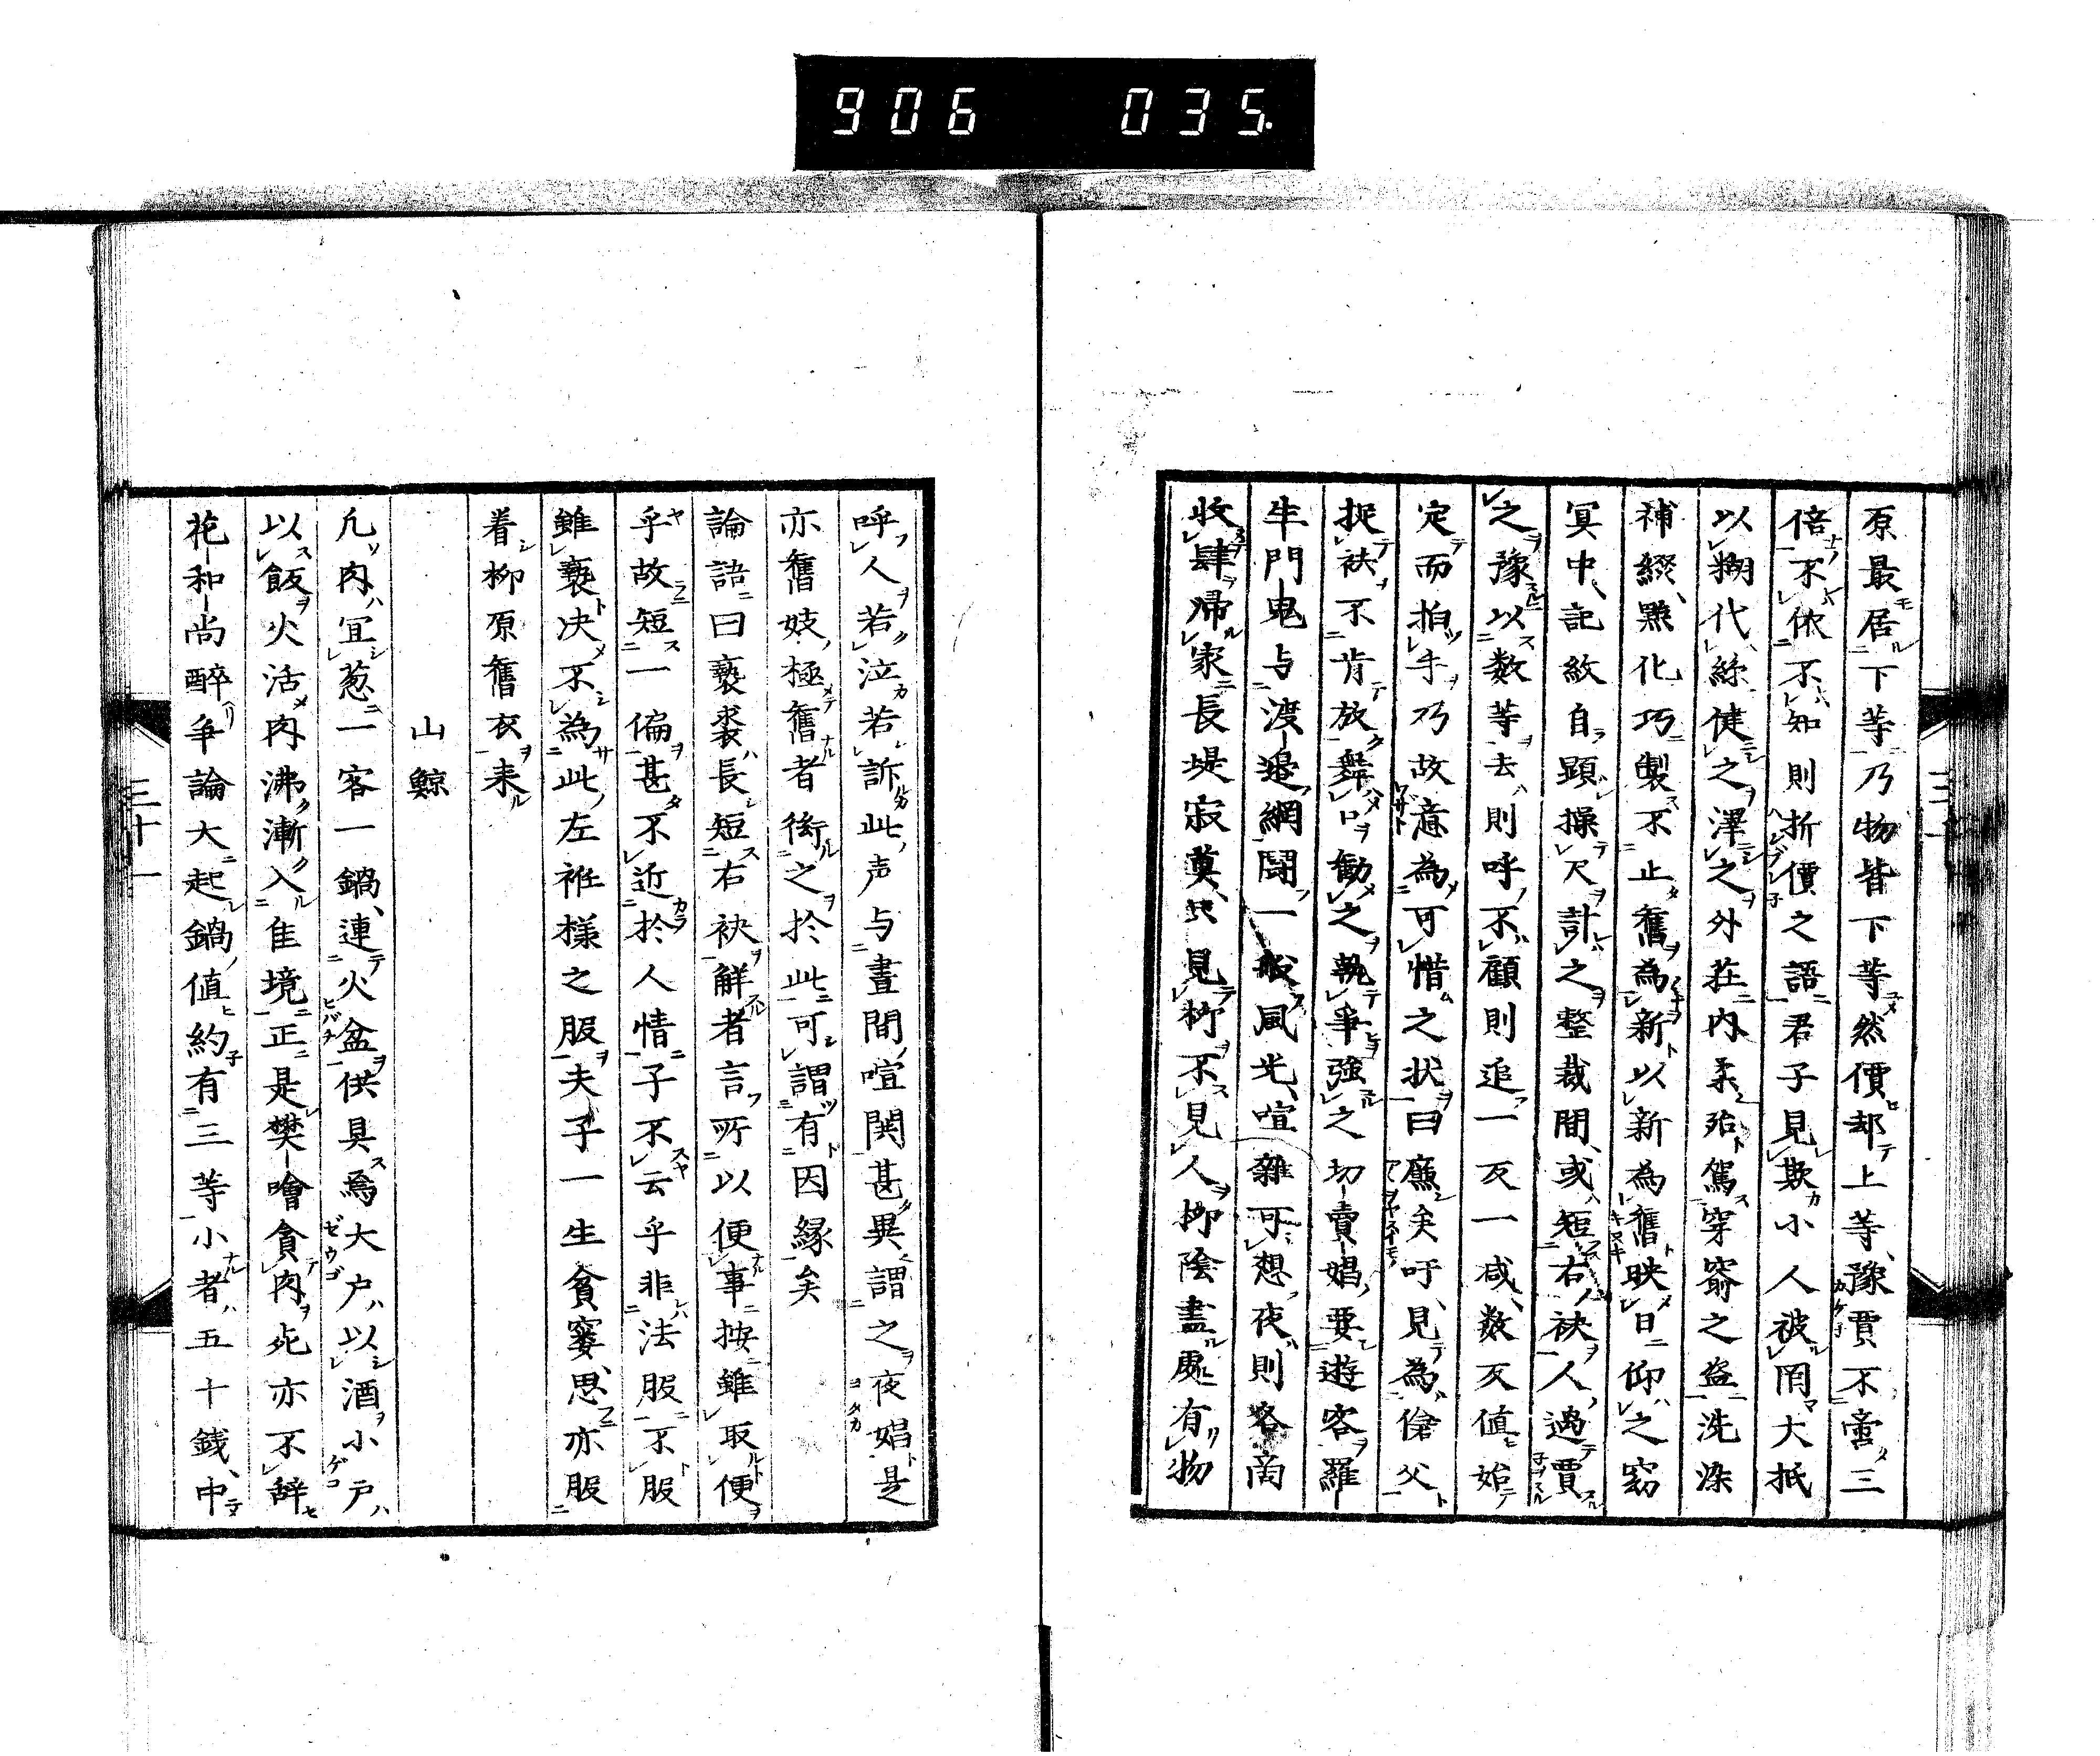 906 035.
原最居下等乃物皆下等然價却上等豫賈不啻三
倍不依不知則折價之語君子見欺小人被罔大抵
以糊代絲健之澤之外莊内柔殆駕穿窬之盗洗染
補綴點化巧製不止舊為新以新為舊映日仰之窈
冥中記紋自顕操尺計之整裁間或短右袂人過賈
之豫以数等去則呼不顧則追一反一咸数反値始
定而拍手乃故意為可惜之状曰廉矣吁見為傖父
捉袂不肯放舞口勧之執爭強之切賣娼要遊客羅
生門鬼与渡邉綱鬪一般風光喧雜可想夜則各商
收肆帰家長堤寂寞只見柳不見人柳陰盡處有物
呼人若泣若訴此声与晝間喧鬨甚異謂之夜娼是
亦舊妓極舊者衒之於此可謂有因縁矣
論語曰褻裘長短右袂解者言所以便事按雖取便
乎故短一偏甚不近於人情子不云乎非法服不服
雖褻决不為此左袵様之服夫子一生貧窭思亦服
着柳原舊衣来
山鯨
凡肉宜葱一客一鍋連火盆供具焉大户以酒小户
以飯火活肉沸漸入佳境正是樊噲貪肉死亦不辞
花和尚醉争論大起鍋値約有三等小者五十銭中
三十一